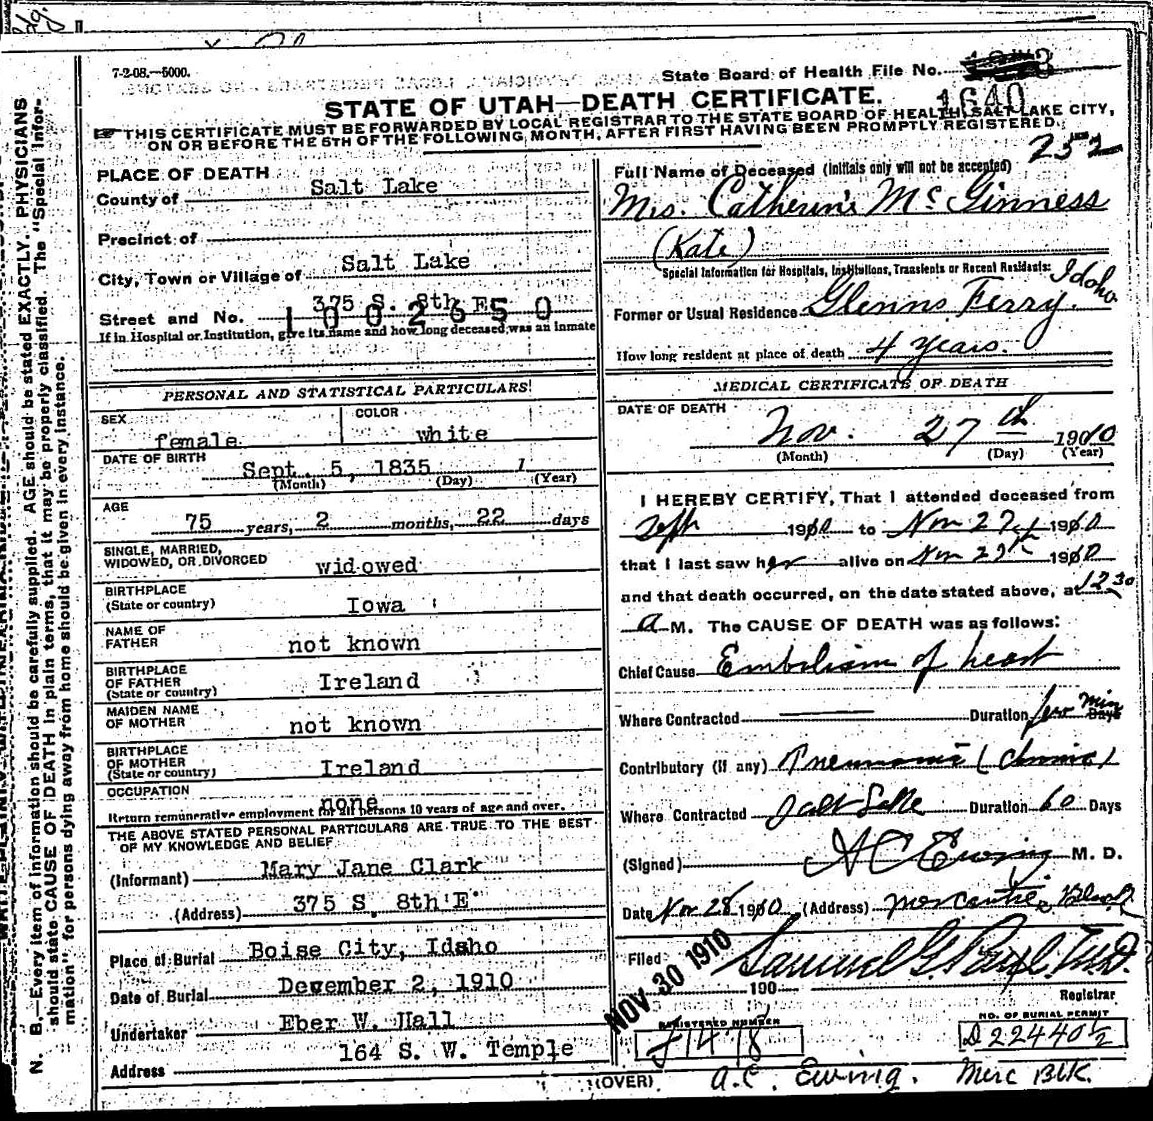 7-2-08.—5000.
State Board of Health File No.
1640
STATE OF UTAH—DEATH CERTIFICATE.
THIS CERTIFICATE MUST BE FORWARDED BY LOCAL REGISTRAR TO THE STATE BOARD OF HEALTH, SALT LAKE CITY,
ON OR BEFORE THE 5TH OF THE FOLLOWING MONTH, AFTER FIRST HAVING BEEN PROMPTLY REGISTERED.
252
PLACE OF DEATH
County of Salt Lake
Precinct of
City, Town or Village of Salt Lake
Street and No. 375 S. 8th E
1002650
If in Hospital or Institution, give its name and how long deceased was an inmate
PERSONAL AND STATISTICAL PARTICULARS
SEX female COLOR white
DATE OF BIRTH Sept. 5, 1835
(Month) (Day) (Year)
AGE 75 years, 2 months, 22 days
SINGLE, MARRIED,
WIDOWED, OR DIVORCED widowed
BIRTHPLACE
(State or country) Iowa
NAME OF
FATHER not known
BIRTHPLACE
OF FATHER
(State or country) Ireland
MAIDEN NAME
OF MOTHER not known
BIRTHPLACE
OF MOTHER
(State or country) Ireland
OCCUPATION none
Return remunerative employment for all persons 10 years of age and over.
THE ABOVE STATED PERSONAL PARTICULARS ARE TRUE TO THE BEST
OF MY KNOWLEDGE AND BELIEF
(Informant) Mary Jane Clark
(Address) 375 S. 8th E
Place of Burial Boise City, Idaho
Date of Burial December 2, 1910
Undertaker Eber W. Hall
Address 164 S. W. Temple
Full Name of Deceased (Initials only will not be accepted)
Mrs. Catherine McGinness
(Kate)
Special Information for Hospitals, Institutions, Transients or Recent Residents:
Former or Usual Residence Glenns Ferry. Idaho
How long resident at place of death 4 years.
MEDICAL CERTIFICATE OF DEATH
DATE OF DEATH
Nov. 27th 1910
(Month) (Day) (Year)
I HEREBY CERTIFY, That I attended deceased from
Sept 1910 to Nov 27 1910
that I last saw her alive on Nov 27th 1910
and that death occurred, on the date stated above, at 12 30
a M. The CAUSE OF DEATH was as follows:
Chief Cause Embolism of heart
Where Contracted Duration few min Days
Contributory (if any) Pneumonia (chronic)
Where Contracted Salt Lake Duration 60 Days
(Signed) A C Ewing M. D.
Date Nov 28 1910 (Address) Mercantile Block
Filed NOV 30 1910 190 Samuel G Paul, M.D.
Registrar
REGISTERED NUMBER
J1478
NO. OF BURIAL PERMIT
D22440 1/2
(OVER)
A.C. Ewing. Merc Blk.
N. B.—Every item of information should be carefully supplied. AGE should be stated EXACTLY. PHYSICIANS
should state CAUSE OF DEATH in plain terms, that it may be properly classified. The "Special Infor-
mation" for persons dying away from home should be given in every instance.